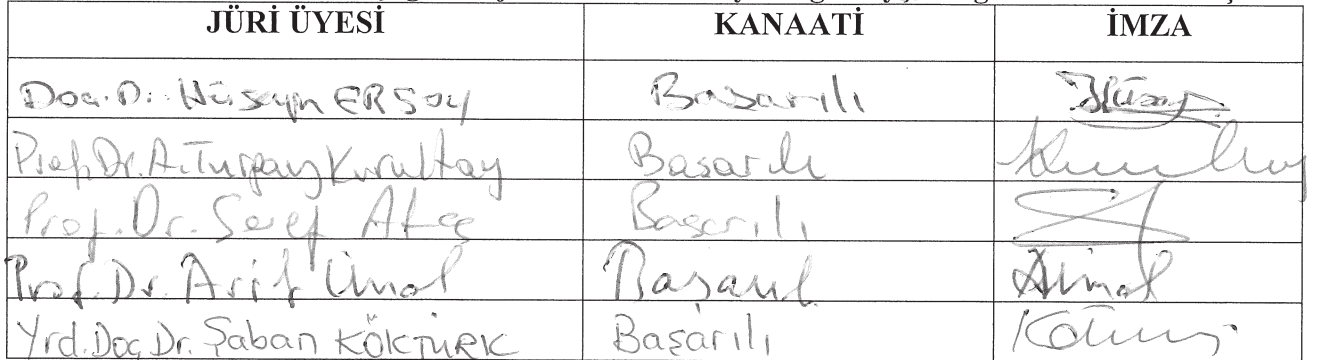 JÜRİ ÜYESİ KANAATİ İMZA
Doç. Dr. Hüseyin ERSOY Başarılı
Prof. Dr. A. Turgay Kurultay Başarılı
Prof. Dr. Şeref Ateş Başarılı
Prof. Dr. Arif Ünal Başarılı
Yrd. Doç. Dr. Şaban KÖKTÜRK Başarılı